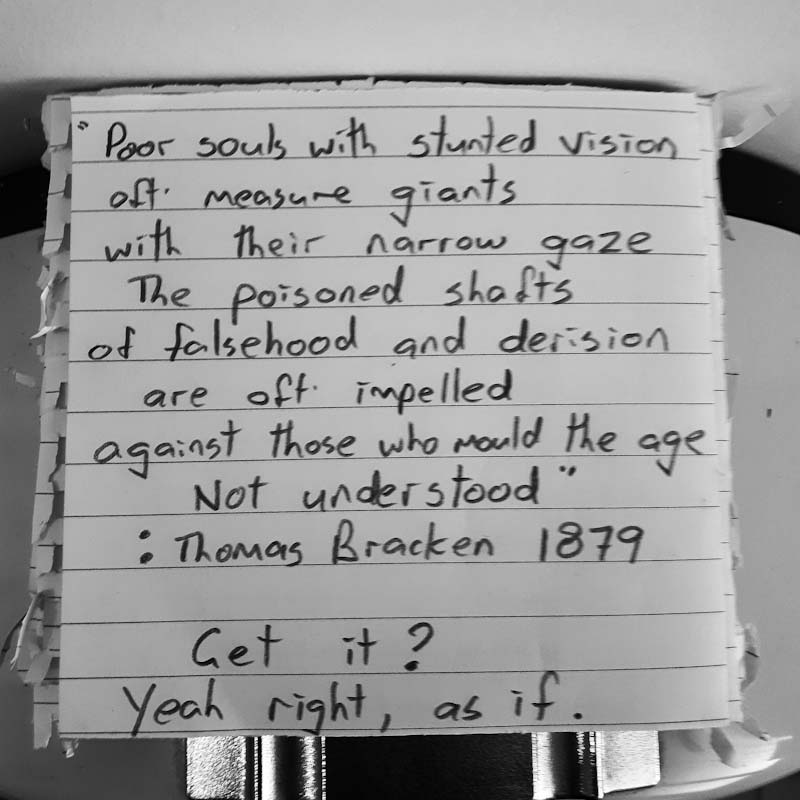 "Poor souls with stunted vision
oft. measure giants
with their narrow gaze
The poisoned shafts
of falsehood and derision
are oft. impelled
against those who mould the age
Not understood"
: Thomas Bracken 1879
Get it?
Yeah right, as if.